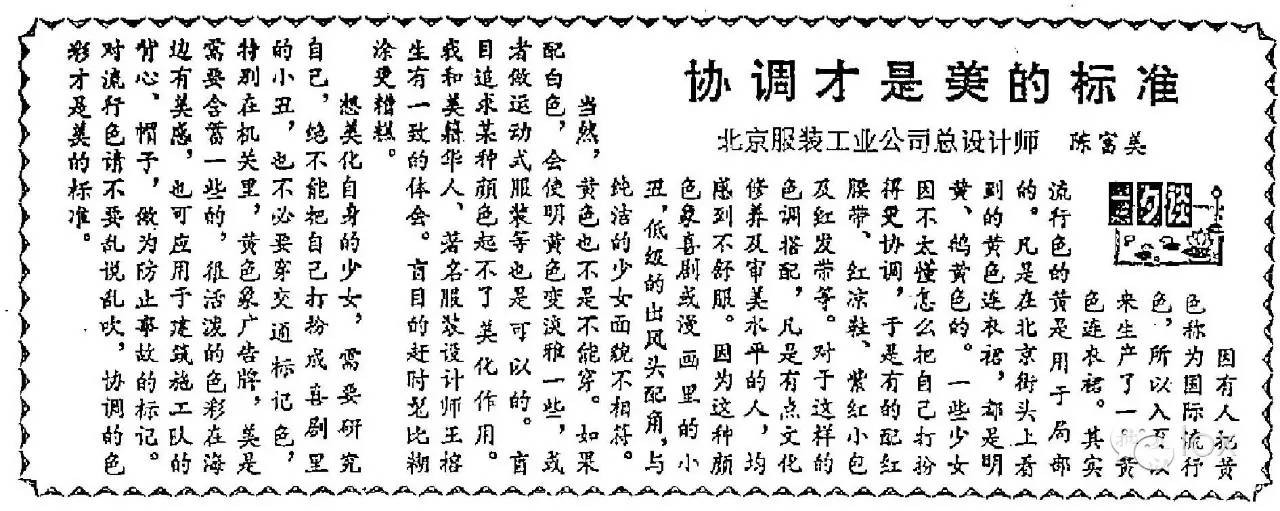 协调才是美的标准
北京服装工业公司总设计师 陈富美
因有人把黄
色称为国际流行
色，所以入夏以
来生产了一批黄
色连衣裙。其实
流行色的黄是用于局部
的。凡是在北京街头上看
到的黄色连衣裙，都是明
黄、鸠黄色的。一些少女
因不太懂怎么把自己打扮
得更协调，于是有的配红
腰带、红凉鞋、紫红小包
及红发带等。对于这样的
色调搭配，凡是有点文化
修养及审美水平的人，均
感到不舒服。因为这种颜
色象喜剧或漫画里的小
丑，低级的出风头配角，与
纯洁的少女面貌不相符。
当然，黄色也不是不能穿。如果
配白色，会使明黄色变淡雅一些，或
者做运动式服装等也是可以的。盲
目追求某种颜色起不了美化作用。
我和美籍华人、著名服装设计师王榕
生有一致的体会。盲目的赶时髦比糊
涂更糟糕。
想美化自身的少女，需要研究
自己，绝不能把自己打扮成喜剧里
的小丑，也不必要穿交通标记色，
特别在机关里，黄色象广告牌，美是
需要含蓄一些的，很活泼的色彩在海
边有美感，也可应用于建筑施工队的
背心、帽子，做为防止事故的标记。
对流行色请不要乱说乱吹，协调的色
彩才是美的标准。